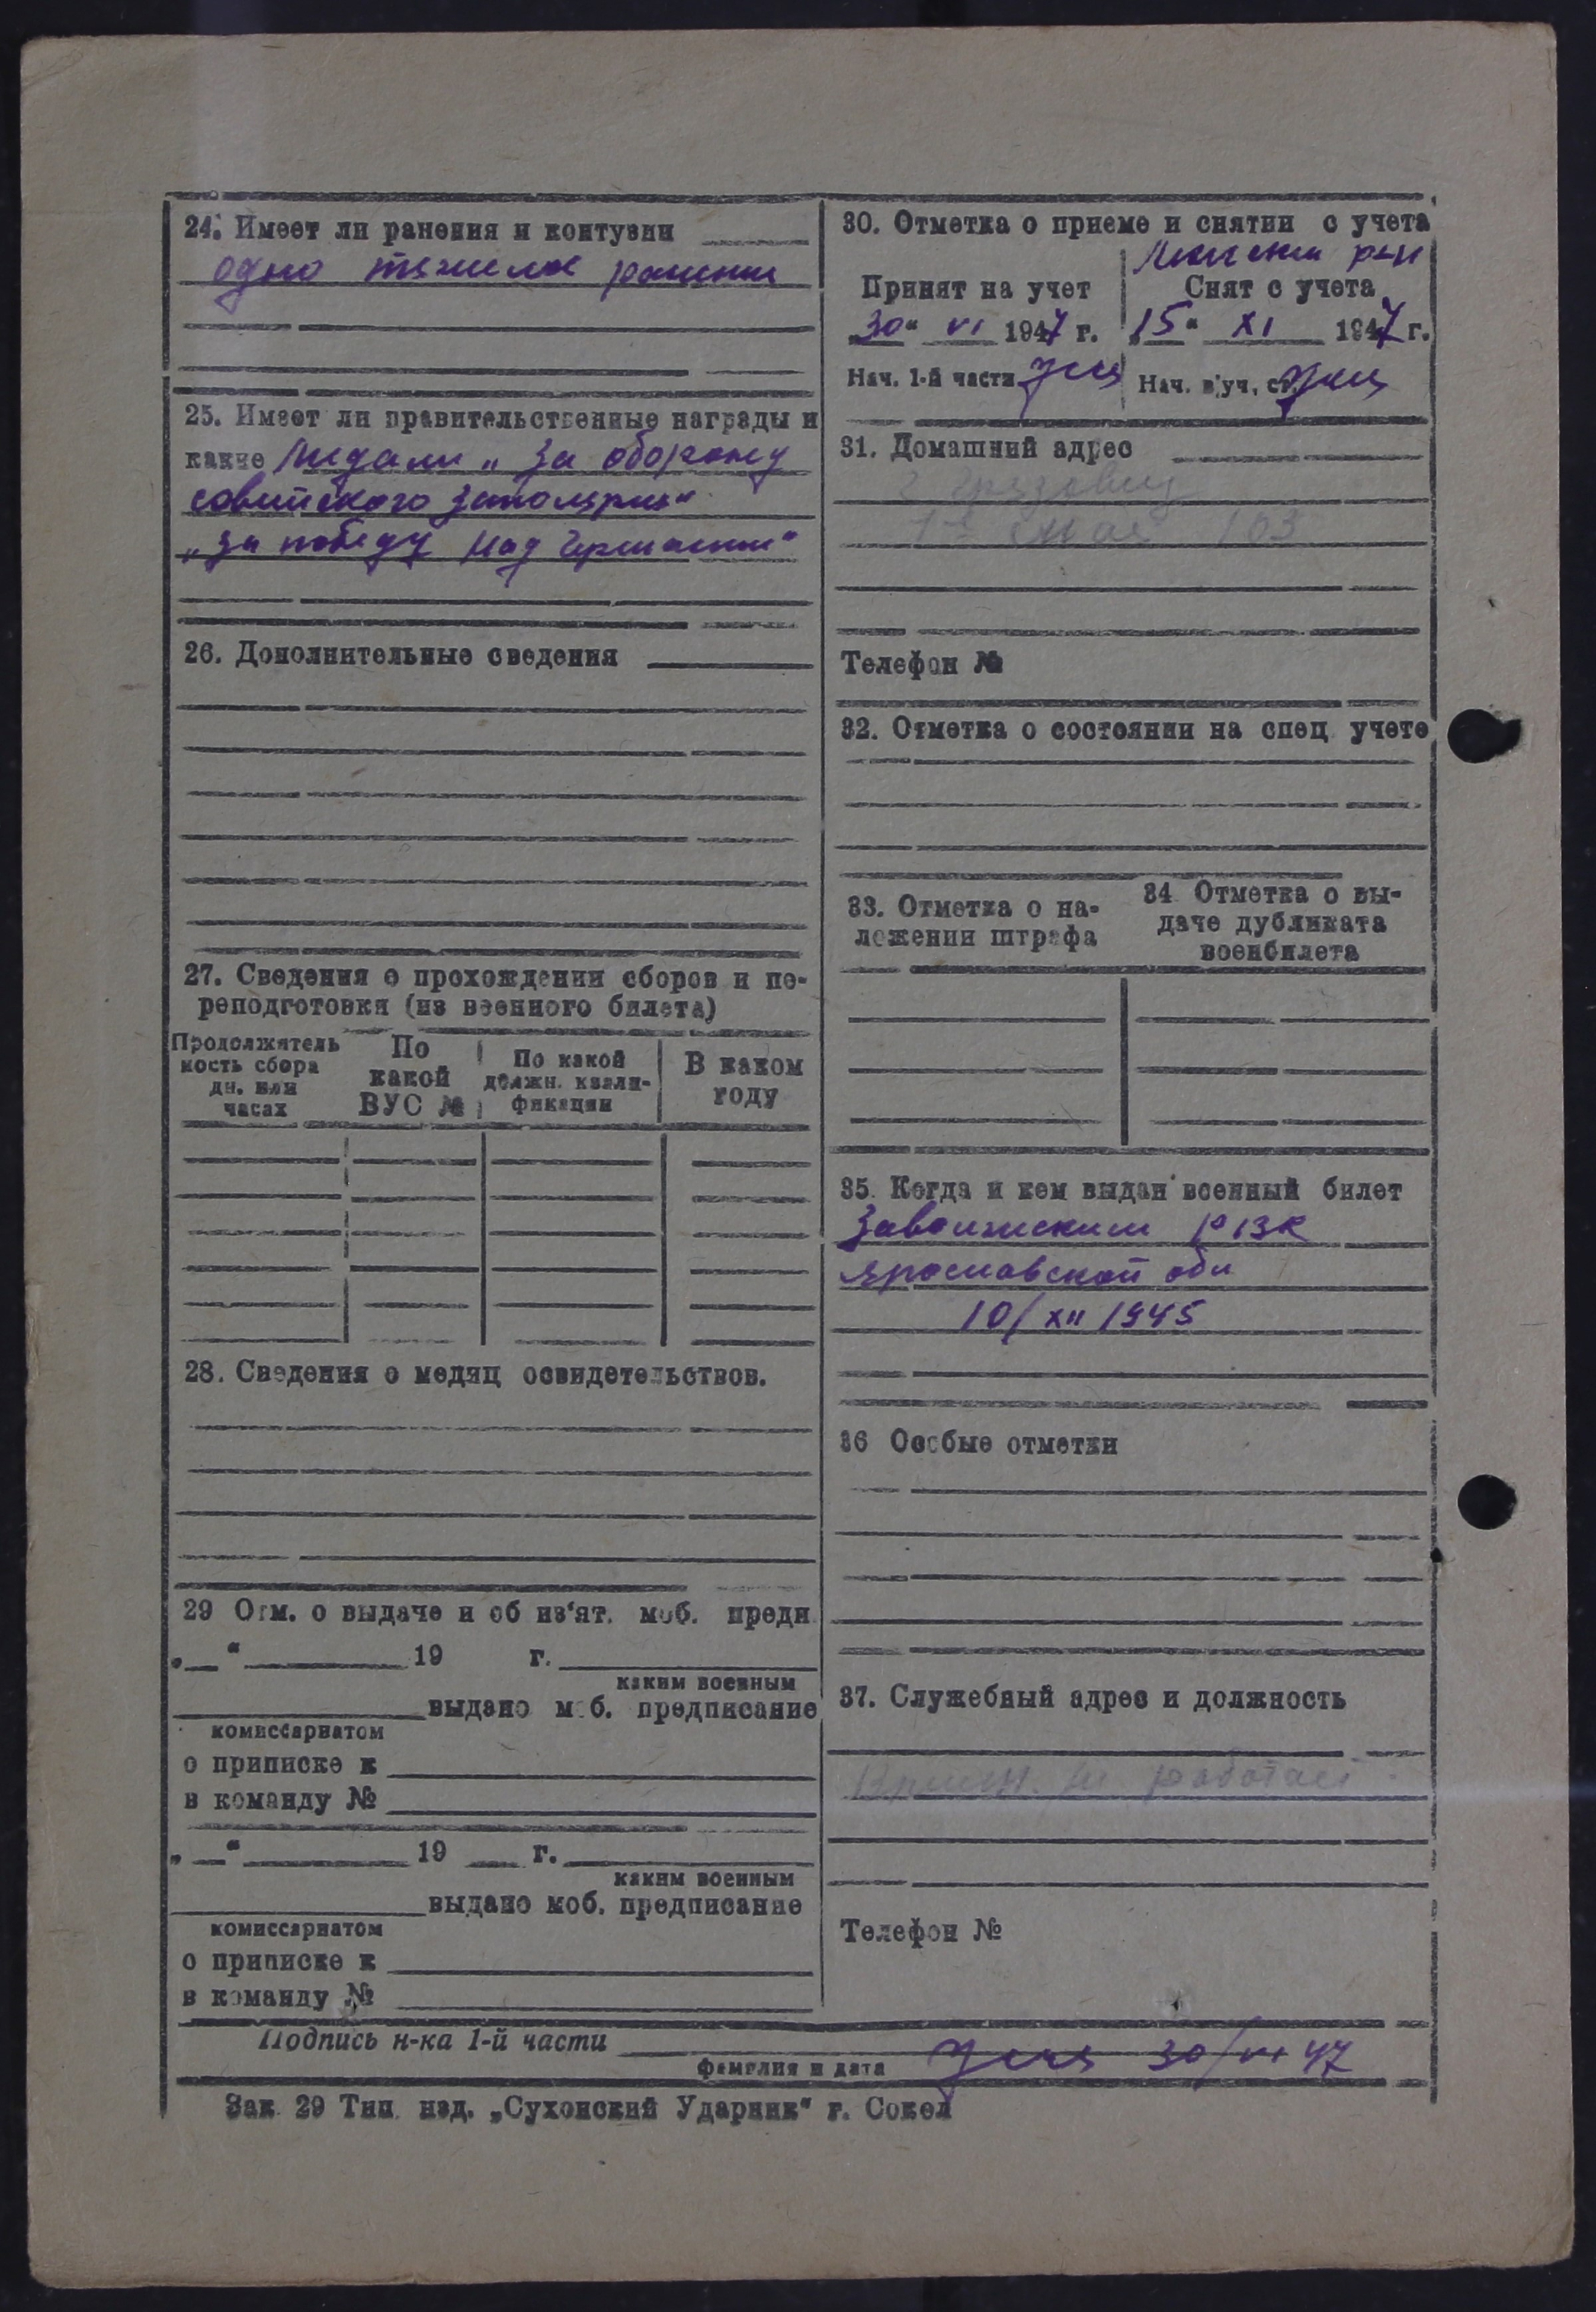 24. Имеет ли ранения и контузии
одно тяжелое ранение
25. Имеет ли правительственные награды и
какие Медали „За оборону
советского заполярия“
„За победу над Германией“
26. Дополнительные сведения
27. Сведения о прохождении сборов и пе-
реподготовки (из военного билета)
Продолжитель
ность сбора
дн. или
часах
По
какой
ВУС №
По какой
должн. квали-
фикации
В каком
году
28. Сведения о медиц освидетельствов.
29 Отм. о выдаче и об из'ят. моб. предп.
„ “ 19 г.
каким военным
выдано моб. предписание
комиссариатом
о приписке к
в команду №
„ “ 19 г.
каким военным
выдано моб. предписание
комиссариатом
о приписке к
в команду №
30. Отметка о приеме и снятии с учета
Принят на учет
30“ VI 1947 г.
Нач. 1-й части
р-н
Снят с учета
„15“ XI 1947 г.
Нач. в/уч. ст.
31. Домашний адрес
г Грязовец
1е Мая 103
Телефон №
32. Отметка о состоянии на спец учете
33. Отметка о на-
ложении штрафа
34 Отметка о вы-
даче дубликата
военбилета
35. Когда и кем выдан военный билет
Заволжским РВК
Ярославской обл
10/XII 1945
36 Особые отметки
37. Служебный адрес и должность
Времен. не работает
Телефон №
Подпись н-ка 1-й части
фамилия и дата
30/VI 47
Зак 29 Тип. изд. „Сухонский Ударник“ г. Сокол